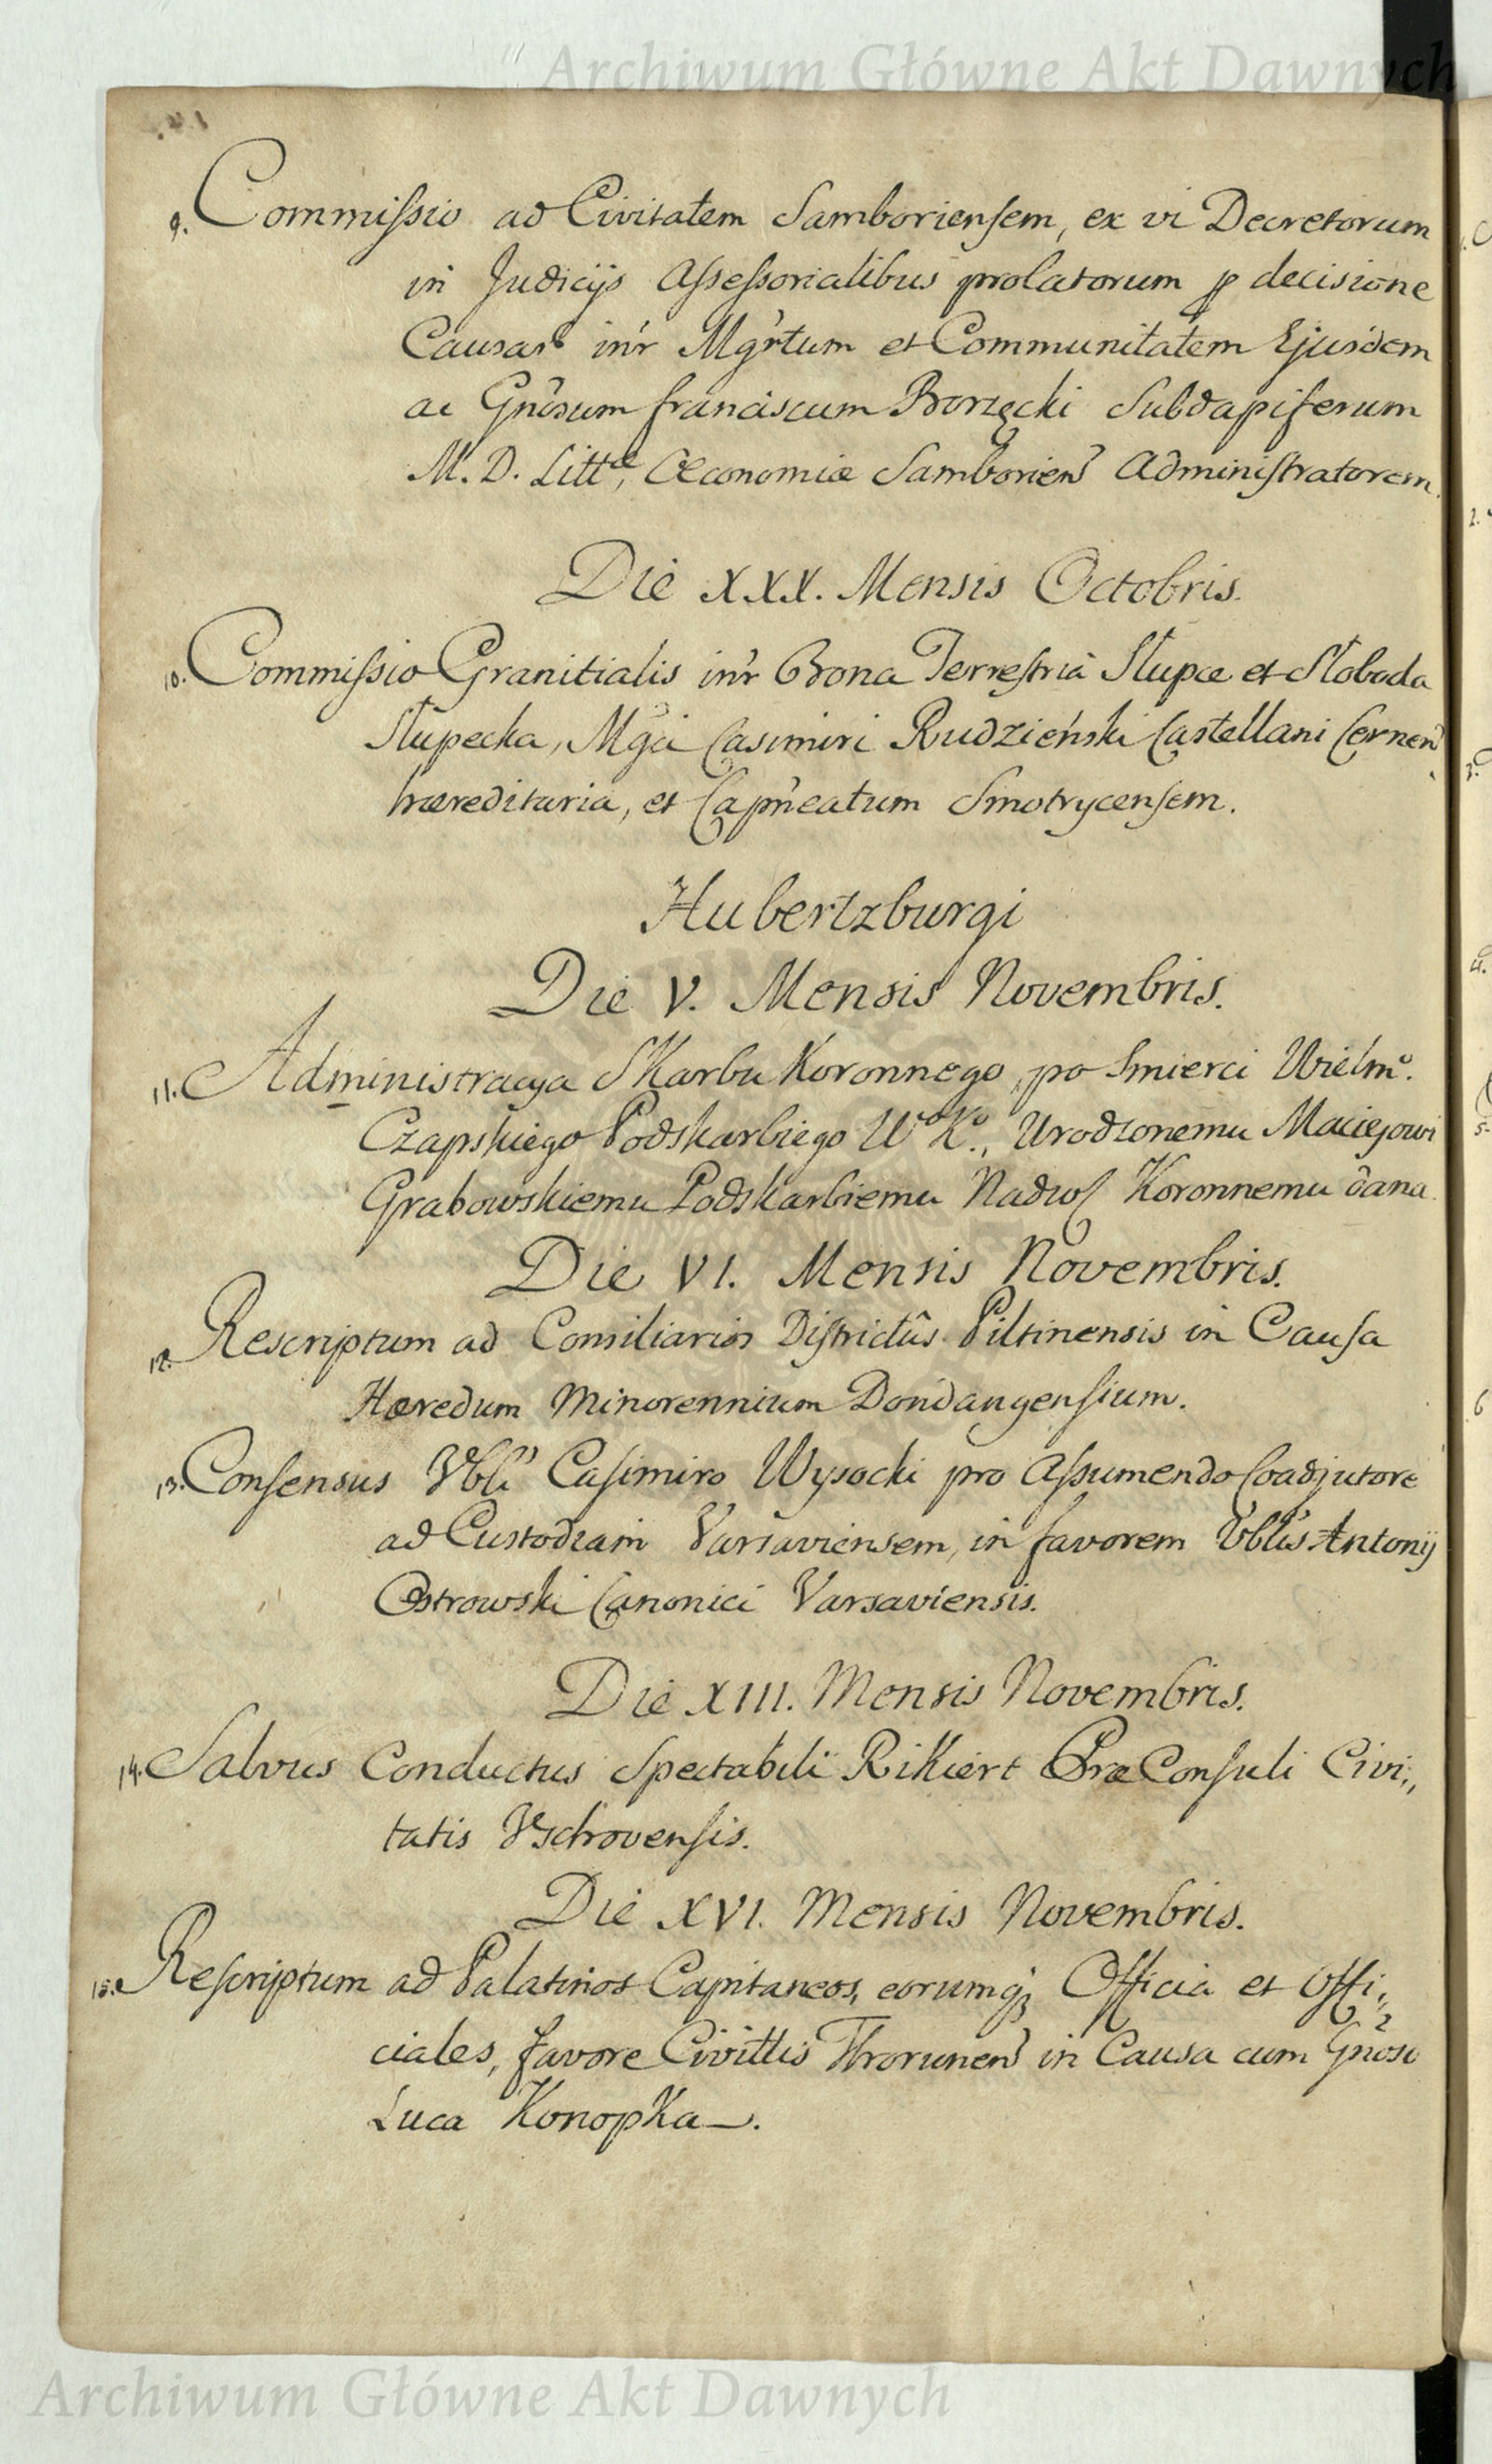 Archiwum Główne Akt Dawnych
9. Commissio ad Civitatem Samboriensem, ex vi Decretorum
in Judicijs Assessorialibus prolatorum p decisione
Causar inr Mgrtum et Communitatem Ejusdem
ac Gnosum Franciscum Borzęcki Subdapiferum
M. D. Litt̄æ, Œconomiæ Samborien Administratorem.
Die XXX. Mensis Octobris.
10. Commissio Granitialis inr Bona Terrestria Słupce et Słoboda
Słupecka, Mgci Casimiri Rudzieński Castellani Cernen
hæreditaria, et Capneatum Smotrycensem.
Hubertzburgi
Die V. Mensis Novembris.
11. Administracya Skarbu Koronnego, po Smierci Wielmo.
Czapskiego Podskarbiego Wo Ko., Urodzonemu Maciejowi
Grabowskiemu Podskarbiemu Nadwo Koronnemu dana.
Die VI. Mensis Novembris.
12. Rescriptum ad Consiliarios Districtûs Piltinensis in Causa
Hæredum Minorennium Dondangensium.
13. Consensus Vbli Casimiro Wysocki pro Assumendo Coadjutore
ad Custodiam Varsaviensem, in favorem Vblis Antonij
Ostrowski Canonici Varsaviensis.
Die XIII. Mensis Novembris.
14. Salvus Conductus Spectabili Rikiert PræConsuli Civi„
tatis Vschovensis.
Die XVI. Mensis Novembris.
15. Rescriptum ad Palatinos Capitaneos, eorumq3 Officia et Offi„
ciales, favore Civittis Thorunen in Causa cum Gnoso
Luca Konopka.
Archiwum Główne Akt Dawnych